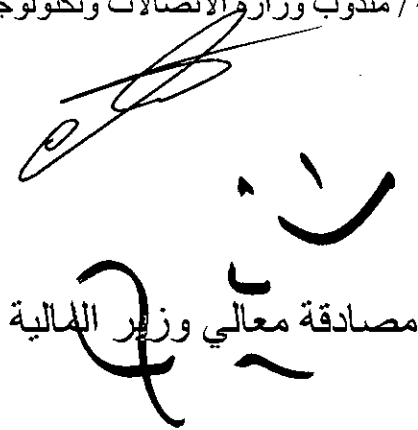 / مندوب وزارة الاتصالات وتكنولوج
مصادقة معالي وزير المالية